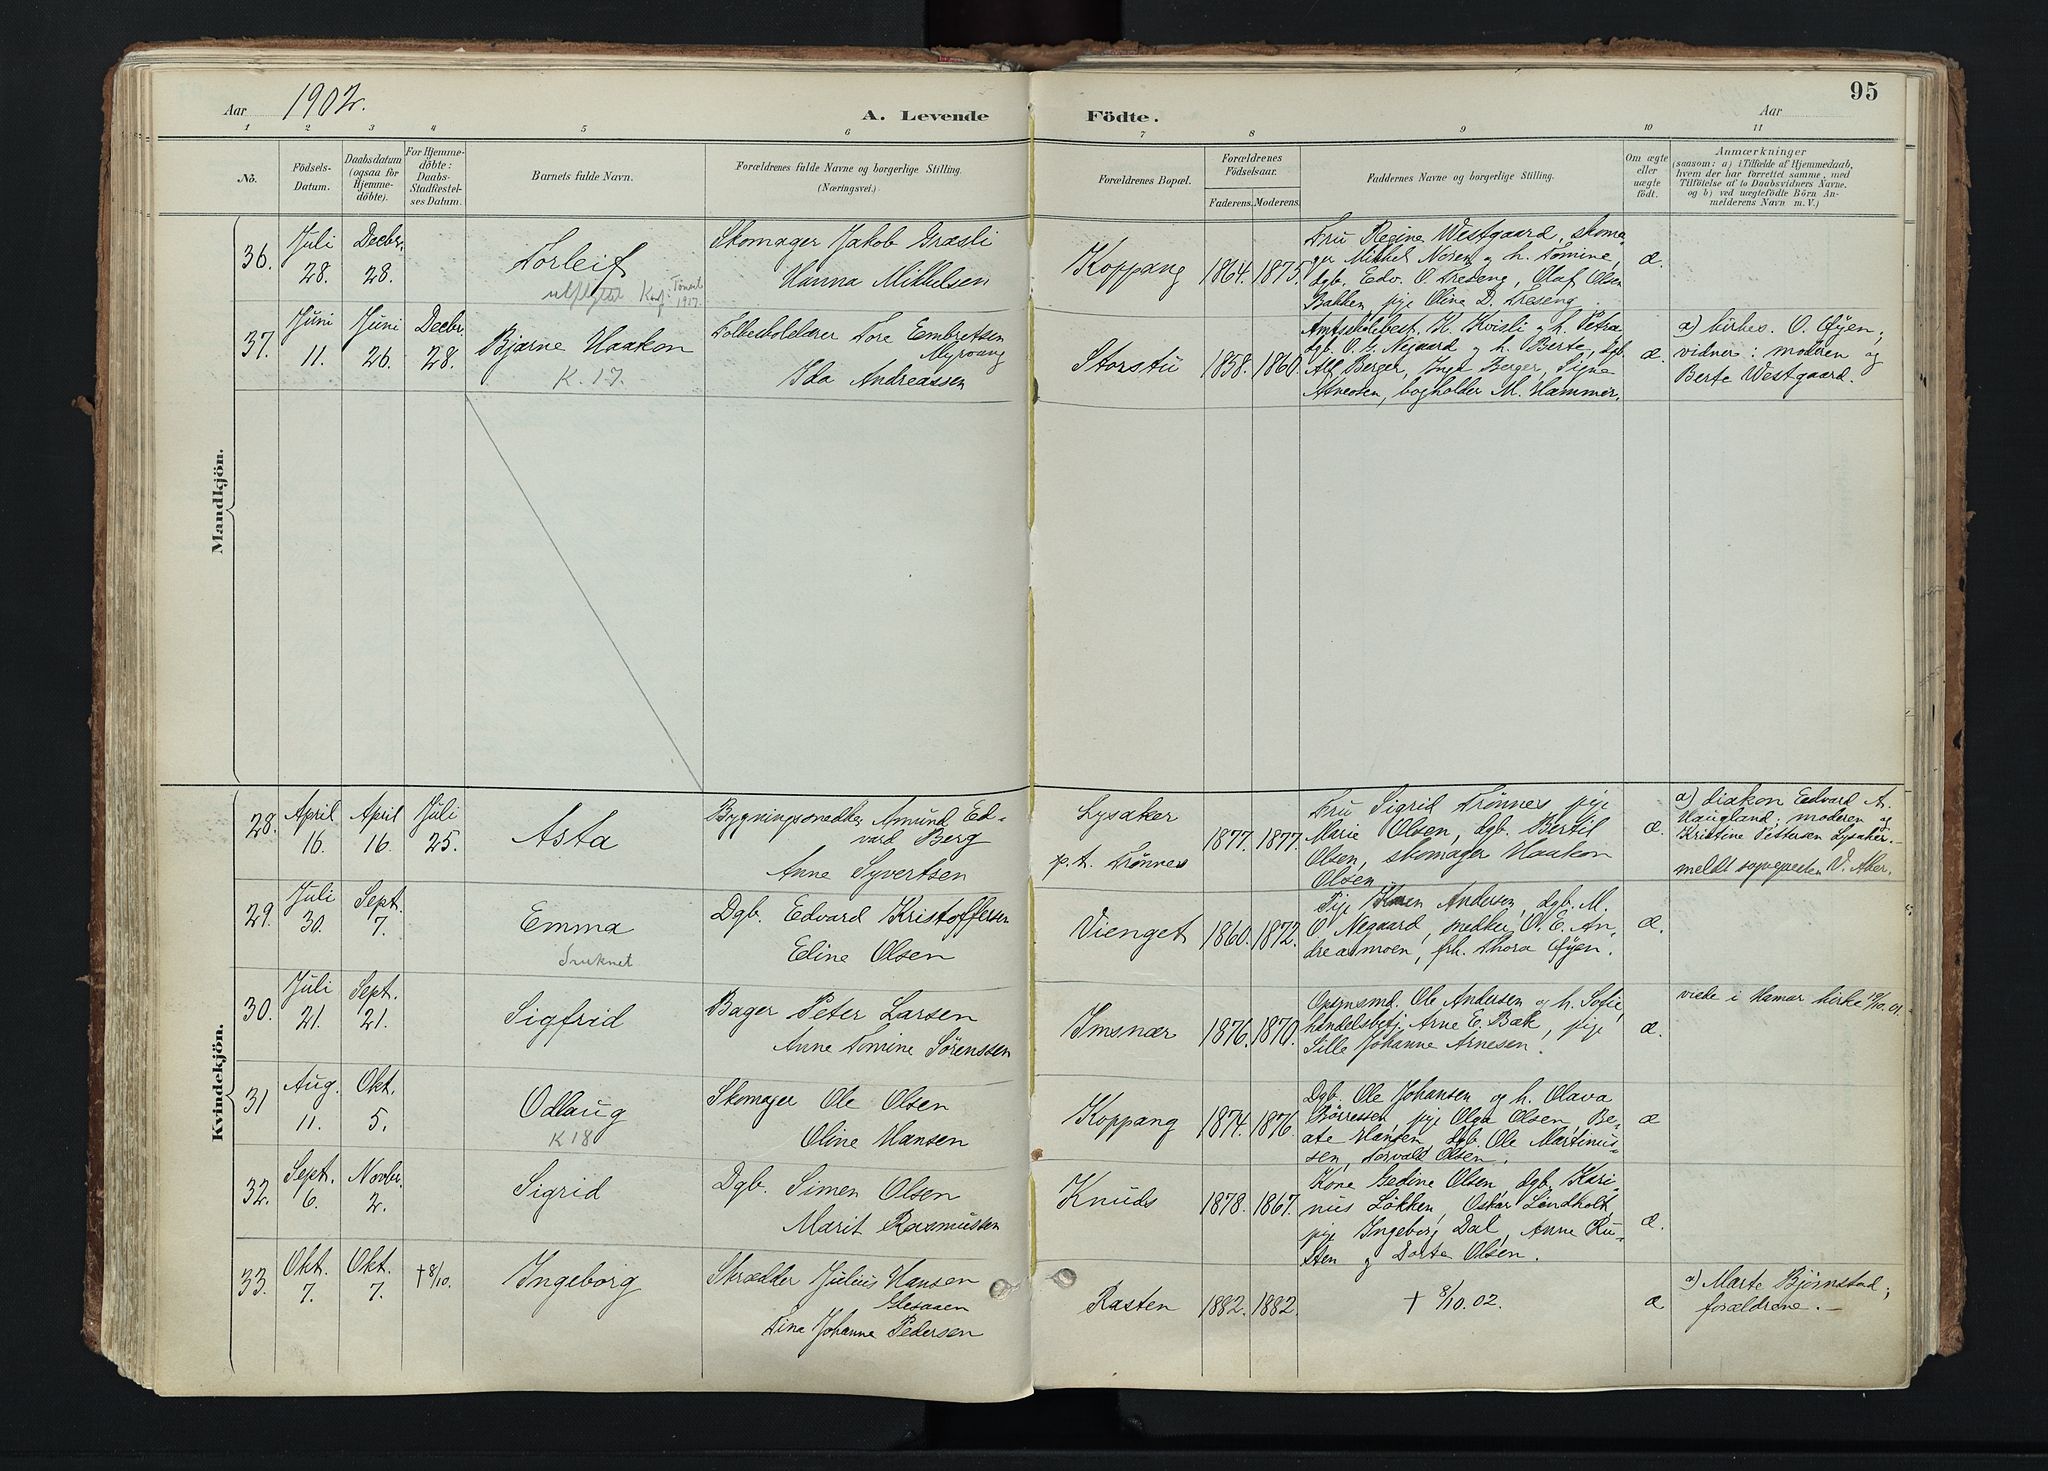 Aar 1902.
A. Levende Födte.
Aar
95
1 2 3 4 5 6 7 8 9 10 11
No.
Födsels-Datum.
Daabsdatum (ogsaa for Hjemmedöbte).
For Hjemmedöbte: Daabs-Stadfæstelses Datum.
Barnets fulde Navn.
Forældrenes fulde Navne og borgerlige Stilling. (Næringsvei.)
Forældrenes Bopæl.
Forældrenes Födselsaar.
Faderens. Moderens.
Faddernes Navne og borgerlige Stilling.
Om ægte eller uægte födt.
Anmærkninger
(saasom: a) i Tilfælde af Hjemmedaab,
hvem der har forrettet samme, med
Tilföielse af to Daabsvidners Navne,
og b) ved uægtefödte Börn An-
melderens Navn m. V.)
Mandkjön.
36. Juli 28. Decbr. 28.
Torleif
utflyttet Konf. Tönset 1917.
Skomager Jakob Græsli
Hanna Mikkelsen
Koppang 1864. 1875.
Fru Regine Westgaard, skoma-
ger Mikkel Noren og h. Tomine,
dgb. Edv. O. Treseng, Olaf Olsen
Bakken, pije Oline D. Treseng.
æ.
37. Juni 11. Juni 26. Decbr. 28.
Bjarne Haakon
K. 17.
Folkeskolelærer Tore Embretsen
Myrvang
Ida Andreassen
Storstu 1858. 1860.
Amtsskolebest. K. Kvisli og h. Petra
dgb. O. G. Negaard og h. Berte, dgb.
Alf Berger, Inga Berger, Signe
Atneosen, bogholder M. Hammer.
æ.
a) kirkes. O. Øyen;
vidner: moderen og
Berte Westgaard.
Kvindekjön.
28. April 16. April 16. Juli 25.
Asta
Bygningssnedker Amund Ed-
vard Berg
Anne Syvertsen
Lysaker
p.t. Trønnes
1877. 1877.
Fru Sigrid Trønnes pije
Marie Olsen, dgb. Bertil
Olsen, skomager Haakon
Olsen.
æ.
a) diakon Edvard A.
Haugland; moderen og
Kristine Pettersen Lysaker.
meldt sognepresten V. Aker.
29. Juli 30. Sept. 7.
Emma
Druknet
Dgb. Edvard Kristoffersen
Edine Olsen
Vienget 1860. 1872.
Pije Karen Andersen, dgb. M.
O. Negaard, snedker O. E. An-
dreasmoen, frk. Thora Øyen.
æ.
30. Juli 21. Sept. 21.
Sigfrid
Bager Peter Larsen
Anne Tomine Sørenssen
Imsnær 1876. 1870.
Opsynsmd. Ole Andersen og h. Sofie,
handelsbetj. Arne E. Bak, pije
Sille Johanne Arnesen.
æ.
viede i Hamar kirke 19/10.01.
31 Aug. 11. Okt. 5.
Odlaug
K 18
Skomager Ole Olsen
Oline Hansen
Koppang 1874. 1876.
Dgb. Ole Johansen og h. Olava
Børressen, pije Olga Olsen, Be-
ate Hansen, dgb. Ole Martinus-
sen, Torvald Olsen.
æ
32. Sept. 6. Novbr. 2.
Sigrid
Dgb. Simen Olsen
Marit Rasmussen
Knuds 1878. 1867.
Kone Gedine Olsen, dgb. Kari-
nus Løkken, Oskar Lindholt,
pije Ingeborg Dal, Anne Ru-
sten og Dorte Olsen.
æ.
33. Okt. 7. Okt. 7. † 8/10.
Ingeborg
Skrædder Julius Hansen
Glesaaen
Tina Johanna Pedersen
Rasten 1882. 1882.
† 8/10.02.
æ
a) Marte Bjørnstad;
forældrene.